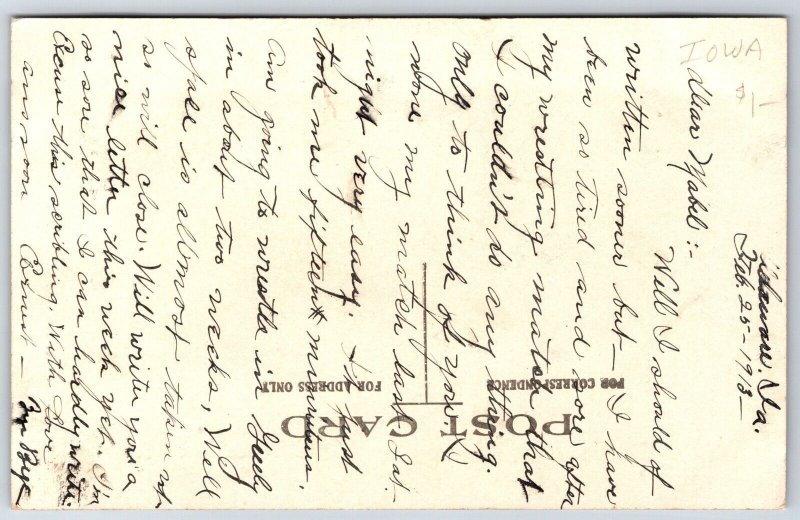 IOWA
$1-
Delaware, Ia.
Feb. 25-1913-
Dear Mabel:-
Well I should of
written sooner but - I have
been so tired and sore after
my wrestling match that
I couldn't do any thing.
only to think of you. I
wone my match last Sat.
night very easy. It just
took me fifteen minutes.
Am going to wrestle in Greely
in about two weeks, Well
space is allmost taken up
so will close. Will write you a
nice letter this week yet. I'm
so sore that I can hardly write.
Excuse this scribling. With Love
ans soon Ernest -
Bye Bye
POST CARD
FOR CORRESPONDENCE
FOR ADDRESS ONLY